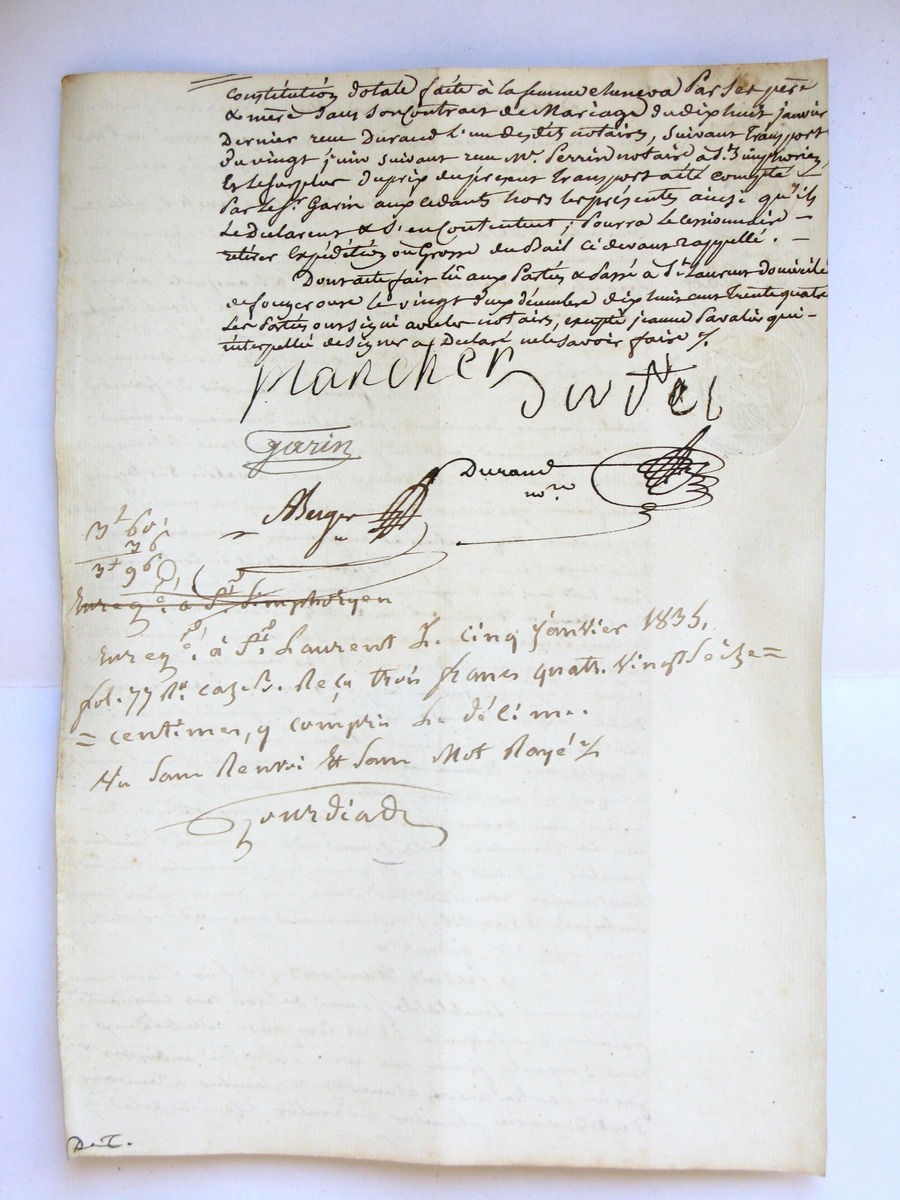 Constitution dotale faite à la femme Chuneva Par Ses père
& mère dans Son Contrat de Mariage du dix huit janvier
Dernier reçu Durand l'un desdits notaires, Suivant Transport
du vingt juin suivant reçu Me. Perrin notaire à St. Simphorien,
Et le Surplus du prix du présent Transport a été compté
Par le Sr. Garin aux cédants hors les présentes ainsi qu'ils
Le Déclarent & S'en Contentent ; Pourra le Cessionnaire —
retirer Expédition ou Grosse du Bail ci devant rappellé . —
Dont acte fait lû aux Parties & Passé à St. Laurent Domicile
de fougerouse le vingt deux décembre dix huit cent Trente quatre
Les Parties ont signé avec les notaires, excepté jeanne Pavalin qui —
interpellée de signer a Déclaré ne le Savoir faire ./.
plancher
garin
Durand
nore
ABerger
3f 60,
36
3f 96
Enregé. à St. Simphoryen
Enregé. à St. Laurent Le cinq Janvier 1835,
fol. 77 Ro. case 5. Reçu trois francs quatre Vingt Seize =
= centimes, y compris Le décime.
Nu Sans Renvoi Et Sans Mot Rayé ./.
Gourdiat
D. T.